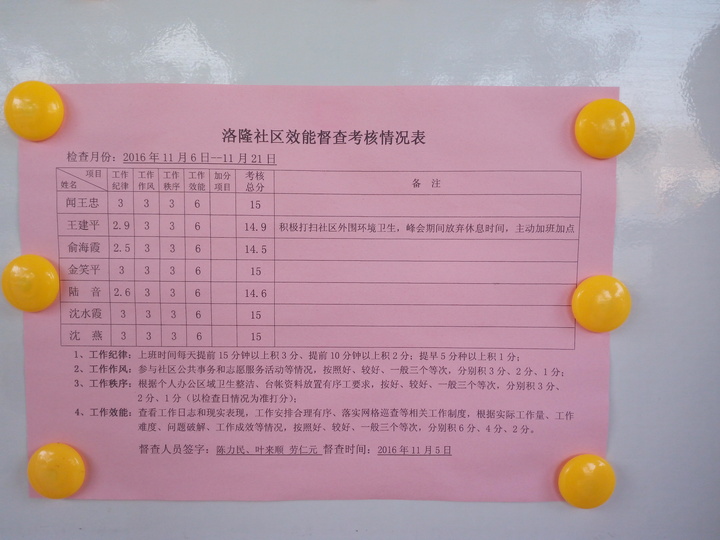 洛隆社区效能督查考核情况表
检查月份：2016年11月6日--11月21日
项目 姓名 工作纪律 工作作风 工作秩序 工作效能 加分项目 考核总分 备 注
闻王忠 3 3 3 6 15
王建平 2.9 3 3 6 14.9 积极打扫社区外围环境卫生，峰会期间放弃休息时间，主动加班加点
俞海霞 2.5 3 3 6 14.5
金笑平 3 3 3 6 15
陆 音 2.6 3 3 6 14.6
沈水霞 3 3 3 6 15
沈 燕 3 3 3 6 15
1、工作纪律：上班时间每天提前15分钟以上积3分、提前10分钟以上积2分；提早5分种以上积1分；
2、工作作风：参与社区公共事务和志愿服务活动等情况，按照好、较好、一般三个等次，分别积3分、2分、1分；
3、工作秩序：根据个人办公区域卫生整洁、台帐资料放置有序工要求，按好、较好、一般三个等次，分别积3分、
2分、1分（以检查日情况为准打分）；
4、工作效能：查看工作日志和现实表现，工作安排合理有序、落实网格巡查等相关工作制度，根据实际工作量、工作
难度、问题破解、工作成效等情况，按照好、较好、一般三个等次，分别积6分、4分、2分。
督查人员签字：陈力民、叶来顺 劳仁元 督查时间：2016年11月5日